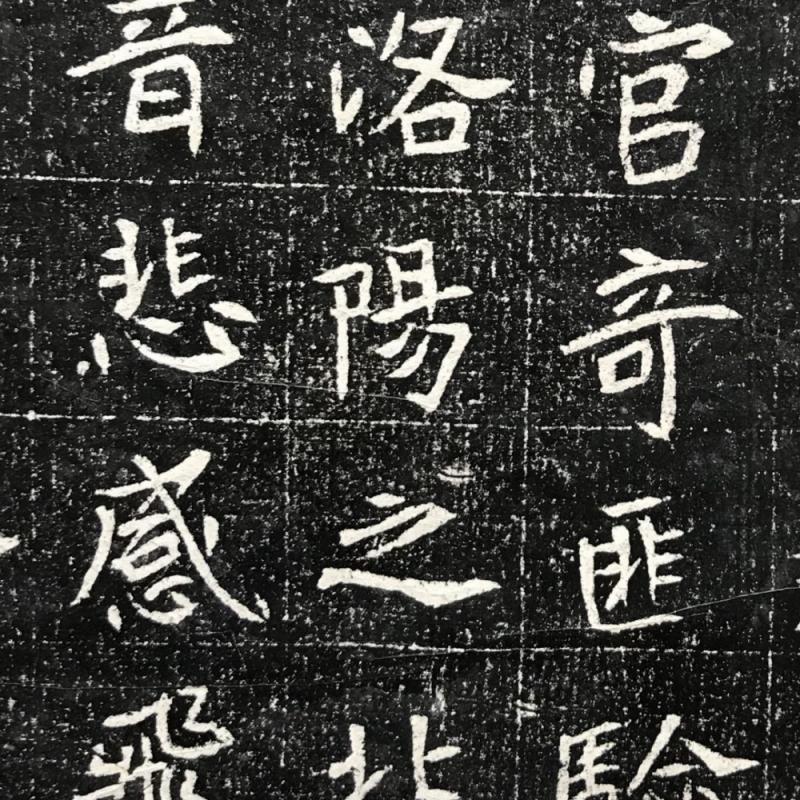 官竒匪驗
洛陽之北
音悲感飛